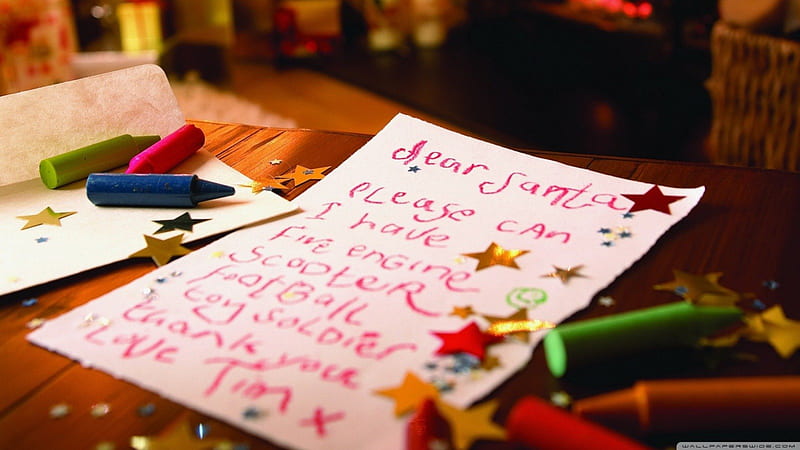 dear santa
please can
I have
Fire engine
Scooter
football
toy soldier
thank you
Love Tim x
WALLPAPERSWIDE.COM